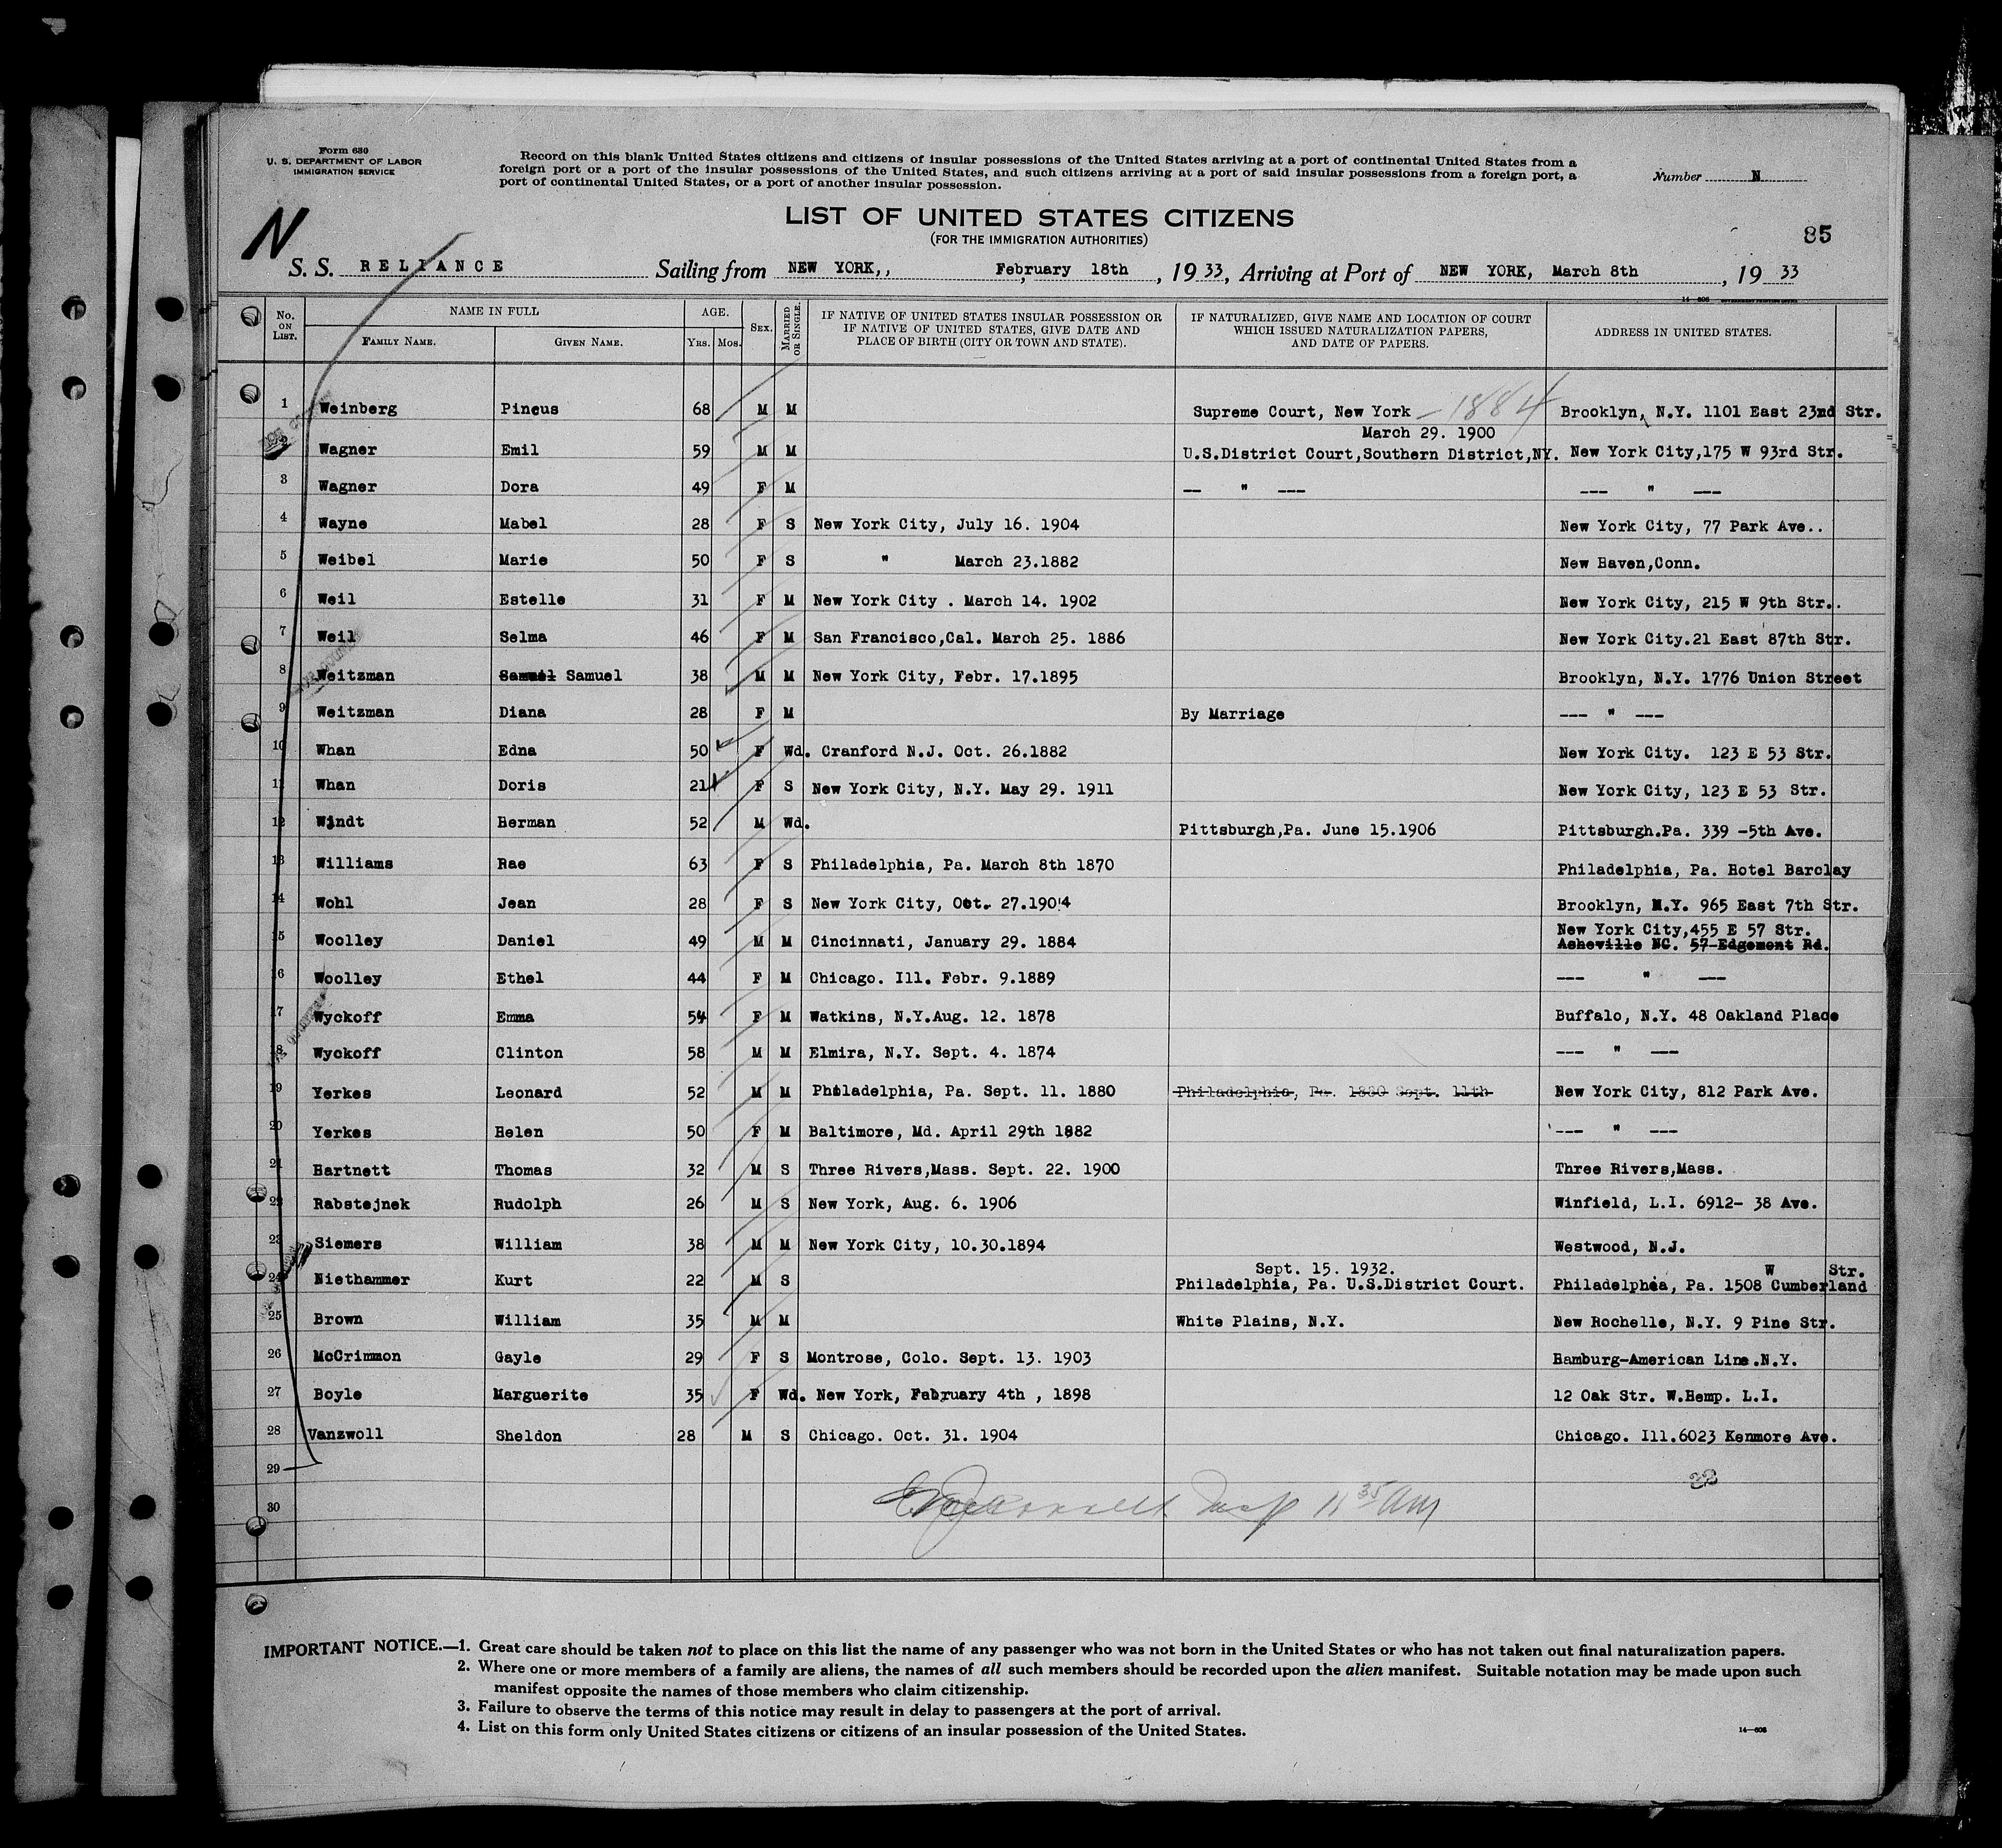 Form 630
U. S. DEPARTMENT OF LABOR
IMMIGRATION SERVICE
Record on this blank United States citizens and citizens of insular possessions of the United States arriving at a port of continental United States from a
foreign port or a port of the insular possessions of the United States, and such citizens arriving at a port of said insular possessions from a foreign port, a
port of continental United States, or a port of another insular possession.
Number N
N
LIST OF UNITED STATES CITIZENS
(FOR THE IMMIGRATION AUTHORITIES)
85
S. S. RELIANCE Sailing from NEW YORK,, February 18th, 1933, Arriving at Port of NEW YORK, March 8th, 1933
14—606
No. ON LIST. NAME IN FULL FAMILY NAME. GIVEN NAME. AGE. YRS. MOS. SEX. MARRIED OR SINGLE. IF NATIVE OF UNITED STATES INSULAR POSSESSION OR IF NATIVE OF UNITED STATES, GIVE DATE AND PLACE OF BIRTH (CITY OR TOWN AND STATE). IF NATURALIZED, GIVE NAME AND LOCATION OF COURT WHICH ISSUED NATURALIZATION PAPERS, AND DATE OF PAPERS. ADDRESS IN UNITED STATES.
1 Weinberg Pincus 68 M M Supreme Court, New York — 1884 Brooklyn, N.Y. 1101 East 23nd Str.
March 29. 1900
2 Wagner Emil 59 M M U.S.District Court,Southern District,NY. New York City,175 W 93rd Str.
3 Wagner Dora 49 F M — " --- --- " ---
4 Wayne Mabel 28 F S New York City, July 16. 1904 New York City, 77 Park Ave..
5 Weibel Marie 50 F S " March 23.1882 New Haven,Conn.
6 Weil Estelle 31 F M New York City . March 14. 1902 New York City, 215 W 9th Str..
7 Weil Selma 46 F M San Francisco,Cal. March 25. 1886 New York City.21 East 87th Str.
8 Weitzman Samuel Samuel 38 M M New York City, Febr. 17.1895 Brooklyn, N.Y. 1776 Union Street
9 Weitzman Diana 28 F M By Marriage --- " ---
10 Whan Edna 50 F Wd. Cranford N.J. Oct. 26.1882 New York City. 123 E 53 Str.
11 Whan Doris 21 F S New York City, N.Y. May 29. 1911 New York City, 123 E 53 Str.
12 Windt Herman 52 M Wd. Pittsburgh,Pa. June 15.1906 Pittsburgh.Pa. 339 -5th Ave.
13 Williams Rae 63 F S Philadelphia, Pa. March 8th 1870 Philadelphia, Pa. Hotel Barclay
14 Wohl Jean 28 F S New York City, Oct. 27.1904 Brooklyn, N.Y. 965 East 7th Str.
New York City,455 E 57 Str.
15 Woolley Daniel 49 M M Cincinnati, January 29. 1884 Asheville NC. 57-Edgemont Rd.
16 Woolley Ethel 44 F M Chicago. Ill. Febr. 9.1889 --- " ---
17 Wyckoff Emma 54 F M Watkins, N.Y.Aug. 12. 1878 Buffalo, N.Y. 48 Oakland Place
18 Wyckoff Clinton 58 M M Elmira, N.Y. Sept. 4. 1874 --- " ---
19 Yerkes Leonard 52 M M Philadelphia, Pa. Sept. 11. 1880 Philadelphia, Pa. 1880 Sept. 11th New York City, 812 Park Ave.
20 Yerkes Helen 50 F M Baltimore, Md. April 29th 1882 --- " ---
21 Hartnett Thomas 32 M S Three Rivers,Mass. Sept. 22. 1900 Three Rivers,Mass.
22 Rabstejnek Rudolph 26 M S New York, Aug. 6. 1906 Winfield, L.I. 6912- 38 Ave.
23 Siemers William 38 M M New York City, 10.30.1894 Westwood, N.J.
Sept. 15. 1932. W Str.
24 Niethammer Kurt 22 M S Philadelphia, Pa. U.S.District Court. Philadelphia, Pa. 1508 Cumberland
25 Brown William 35 M M White Plains, N.Y. New Rochelle, N.Y. 9 Pine Str.
26 McCrimmon Gayle 29 F S Montrose, Colo. Sept. 13. 1903 Hamburg-American Line.N.Y.
27 Boyle Marguerite 35 F Wd. New York, February 4th , 1898 12 Oak Str. W.Hemp. L.I.
28 Vanzwoll Sheldon 28 M S Chicago. Oct. 31. 1904 Chicago. Ill.6023 Kenmore Ave.
29
30
Insp 11 35 AM
IMPORTANT NOTICE.—1. Great care should be taken not to place on this list the name of any passenger who was not born in the United States or who has not taken out final naturalization papers.
2. Where one or more members of a family are aliens, the names of all such members should be recorded upon the alien manifest. Suitable notation may be made upon such
manifest opposite the names of those members who claim citizenship.
3. Failure to observe the terms of this notice may result in delay to passengers at the port of arrival.
4. List on this form only United States citizens or citizens of an insular possession of the United States.
14—606